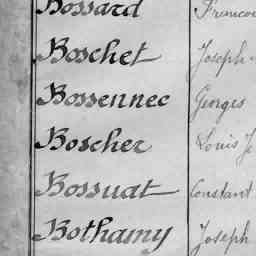 Bossard Francois
Boschet Joseph
Bossennec Georges
Boscher Louis J
Bossuat Constant
Bothamy Joseph